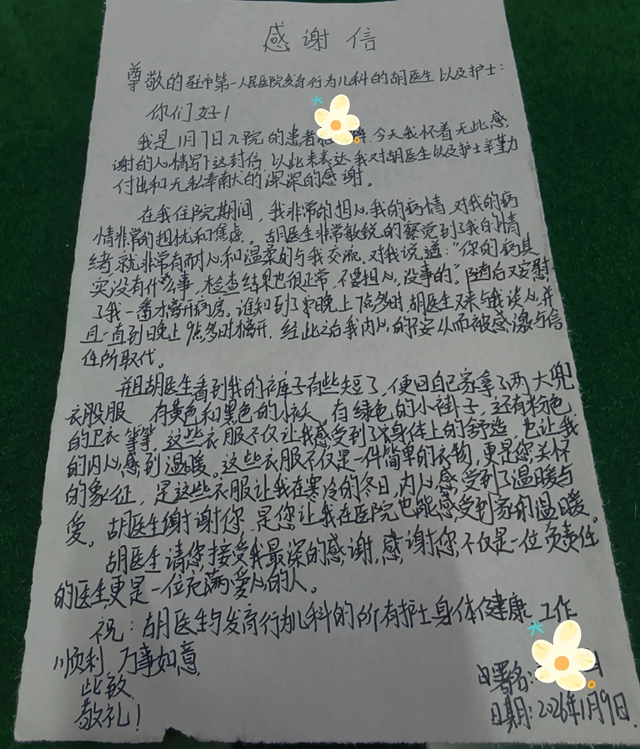 感谢信
尊敬的驻市第一人民医院发育行为儿科的胡医生以及护士：
你们好！
我是1月7日入院的患者 今天我怀着无比感
谢的心情写下这封信 以此来表达我对胡医生以及护士辛勤
付出和无私奉献的深深的感谢。
在我住院期间，我非常的担心我的病情，对我的病
情非常的担忧和焦虑。胡医生非常敏锐的察觉到了我的情
绪 就非常有耐心和温柔的与我交流，对我说道："你的病其
实没有什么事，检查结果也很正常，不要担心，没事的。"随后又安慰
了我一番才离开病房。谁知到了晚上7点多时，胡医生又来与我谈心，并
且一直到晚上9点多时才离开，经此之后我内心的不安从而被感激与信
任所取代。
并且胡医生看到我的裤子有些短了，便回自己家拿了两大兜
衣服 有黄色和黑色的小袄，有绿色的小褂子，还有粉色
的卫衣等等，这些衣服不仅让我感受到了身体上的舒适 也让我
的内心感到温暖。这些衣服不仅是一件简单的衣物，更是您关怀
的象征，是这些衣服让我在寒冷的冬日，内心感受到了温暖与
爱。胡医生谢谢你，是您让我在医院也能感受到家的温暖。
胡医生请您接受我最深的感谢，感谢您，不仅是一位负责任
的医生更是一位充满爱心的人。
祝：胡医生与发育行为儿科的所有护士身体健康 工作
顺利，万事如意
此致
敬礼！
署名：
日期：2026年1月9日